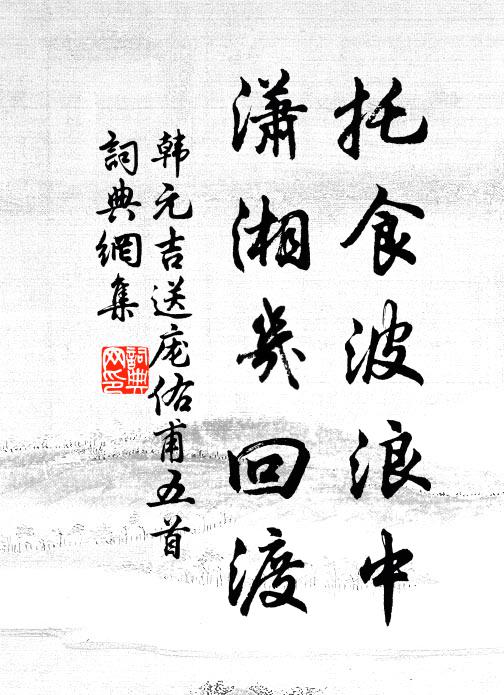 托食波浪中
瀟湘幾回渡
韩元吉送庞佑甫五首
詞典網集
詞典
网印